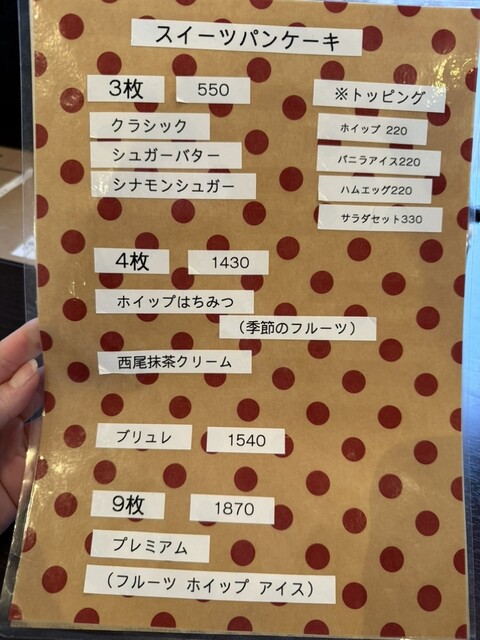 スイーツパンケーキ
3枚 550
クラシック
シュガーバター
シナモンシュガー
※トッピング
ホイップ 220
バニラアイス220
ハムエッグ220
サラダセット330
4枚 1430
ホイップはちみつ
（季節のフルーツ）
西尾抹茶クリーム
ブリュレ 1540
9枚 1870
プレミアム
（フルーツ ホイップ アイス）